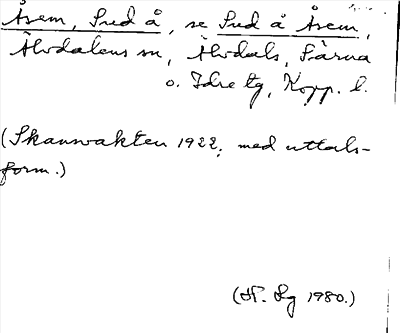 Åsem, Sud å, se Sud å Åsem,
Älvdalens sn, Älvdals, Särna
o. Idre tg, Kopp. l.
(Skansvakten 1922; med uttals-
form.)
(H. Lg 1980.)